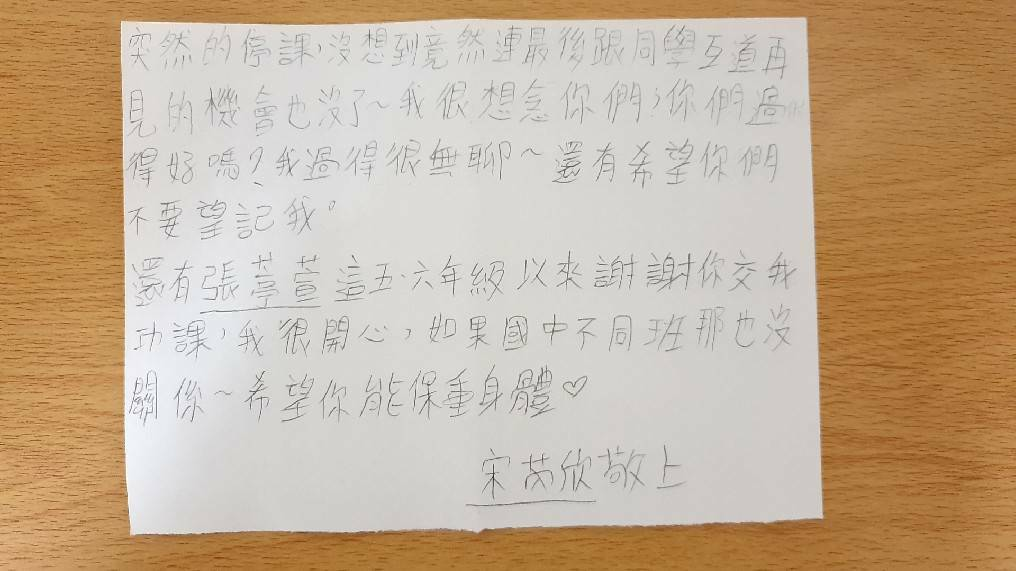 突然的停課,沒想到竟然連最後跟同學互道再
見的機會也沒了~我很想念你們,你們過
得好嗎?我過得很無聊~還有希望你們
不要望記我。
還有張葶萱這五、六年級以來謝謝你交我
功課,我很開心,如果國中不同班那也沒
關係~希望你能保重身體♡
宋芮欣敬上